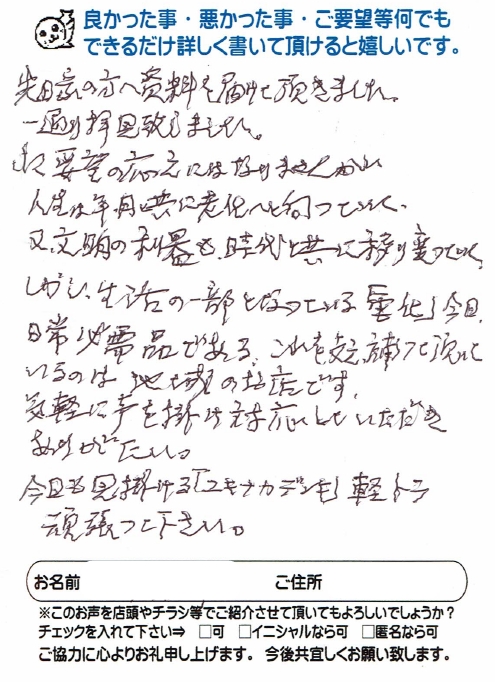 良かった事・悪かった事・ご要望等何でも
できるだけ詳しく書いて頂けると嬉しいです。
先日家の方へ資料を届けて頂きました。
一通り拝見致しました。
ご要望の応えにはなりませんが
人生は年月と共に老化へと向っていく、
又文明の利器も、時代と共に移り変っていく
しかし、生活の一部となっている電化は今日、
日常必需品である、これを支え補って頂いて
いるのは地域の お店です。
気軽に声を掛け対応していただき
ありがたい。
今日も見掛ける「ユキナカデンキ」軽トラ
頑張って下さい。
お名前 ご住所
※このお声を店頭やチラシ等でご紹介させて頂いてもよろしいでしょうか?
チェックを入れて下さい⇒ □可 □イニシャルなら可 □匿名なら可
ご協力に心よりお礼申し上げます。 今後共宜しくお願い致します。